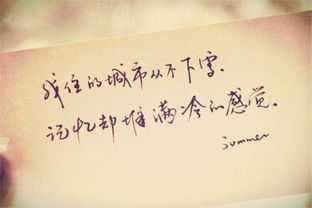 我住的城市从不下雪.
记忆却堆满冷的感觉。
summer